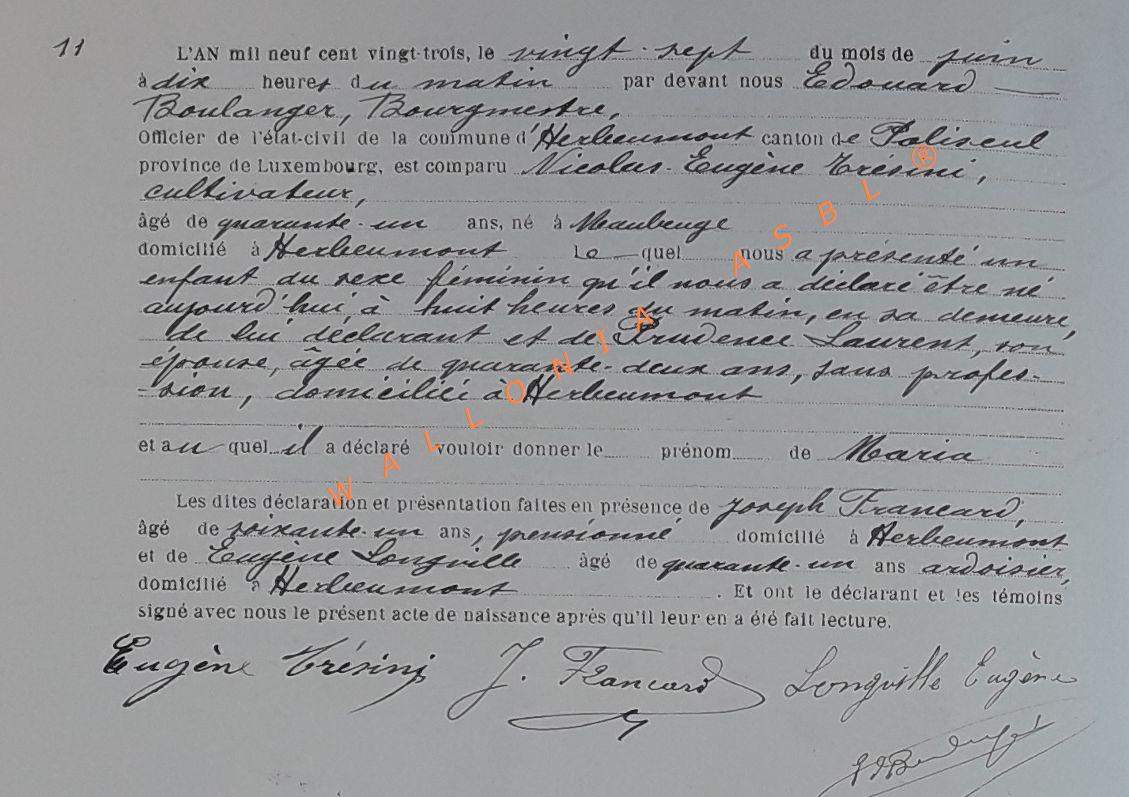 11
L'AN mil neuf cent vingt-trois, le vingt-sept du mois de juin
à dix heures du matin par devant nous Edouard
Boulanger, Bourgmestre,
Officier de l'état-civil de la commune d'Herbeumont canton de Paliseul
province de Luxembourg, est comparu Nicolas-Eugène Trésini,
cultivateur,
âgé de quarante-un ans, né à Maubeuge
domicilié à Herbeumont Le quel nous a présenté un
enfant du sexe féminin qu'il nous a déclaré être né
aujourd'hui à huit heures du matin, en sa demeure,
de lui déclarant et de Prudence Laurent, son
épouse, âgée de quarante-deux ans, sans profes-
-sion, domiciliée à Herbeumont
et au quel il a déclaré vouloir donner le prénom de Maria
Les dites déclaration et présentation faites en présence de Joseph Francard,
âgé de soixante-un ans, pensionné domicilié à Herbeumont
et de Eugène Longville âgé de quarante-un ans ardoisier,
domicilié à Herbeumont. Et ont le déclarant et les témoins
signé avec nous le présent acte de naissance après qu'il leur en a été fait lecture.
Eugène Trésini J. Francard Longville Eugène
WALLONIA ASBL ®